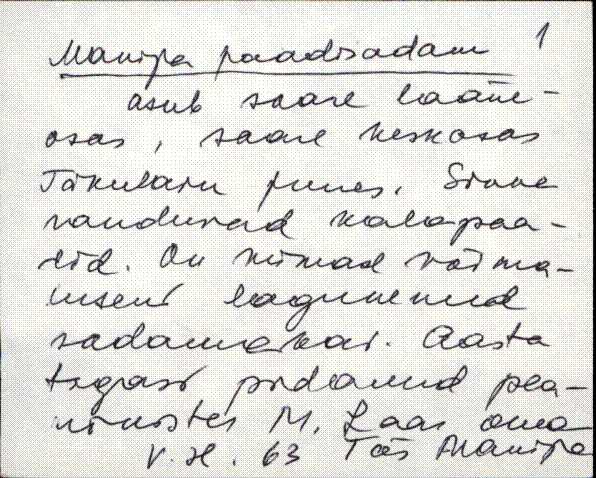 Manija paadisadam 1
asub saare lääne-
osas, saare keskosas
Täkulaiu juures. Sinna
randuvad kalapaa-
did. On viimad võima-
lused lagunenud
sadamakai. Aasta
tagasi pidanud pea-
minister M. Laar oma
V.H. 63 Tõs Manija